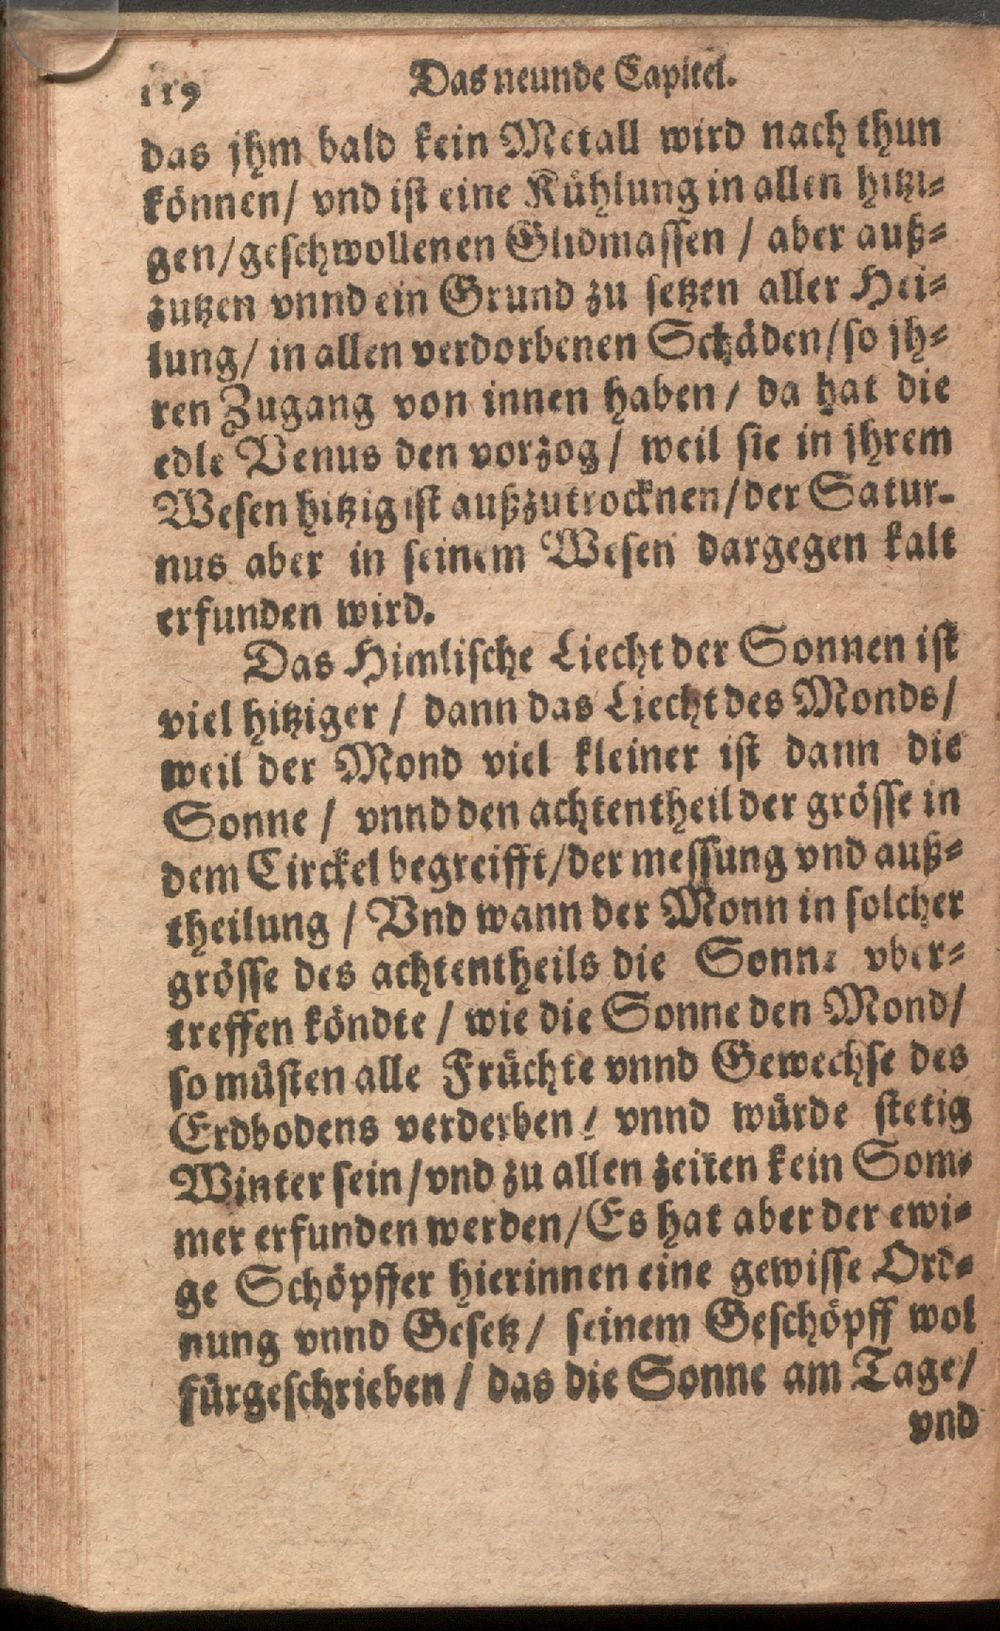 119 Das neunde Capitel.
das jhm bald kein Metall wird nach thun
können/ vnd ist eine Kühlung in allen hitzi-
gen/geschwollenen Glidmassen / aber auß-
zutzen vnnd ein Grund zu setzen aller Hei-
lung/ in allen verdorbenen Schäden/so jh-
ren Zugang von innen haben/ da hat die
edle Venus den vorzog/ weil sie in jhrem
Wesen hitzig ist außzutrocknen/der Satur-
nus aber in seinem Wesen dargegen kalt
erfunden wird.
Das Himlische Liecht der Sonnen ist
viel hitziger / dann das Liecht des Monds/
weil der Mond viel kleiner ist dann die
Sonne / vnnd den achtentheil der grösse in
dem Circkel begreifft/der messung vnd auß-
theilung / Vnd wann der Monn in solcher
grösse des achtentheils die Sonne vber-
treffen köndte / wie die Sonne den Mond/
so müsten alle Früchte vnnd Gewechse des
Erdbodens verderben/ vnnd würde stetig
Winter sein/vnd zu allen zeiten kein Som-
mer erfunden werden/Es hat aber der ewi-
ge Schöpffer hierinnen eine gewisse Ord-
nung vnnd Gesetz/ seinem Geschöpff wol
fürgeschrieben / das die Sonne am Tage/
vnd